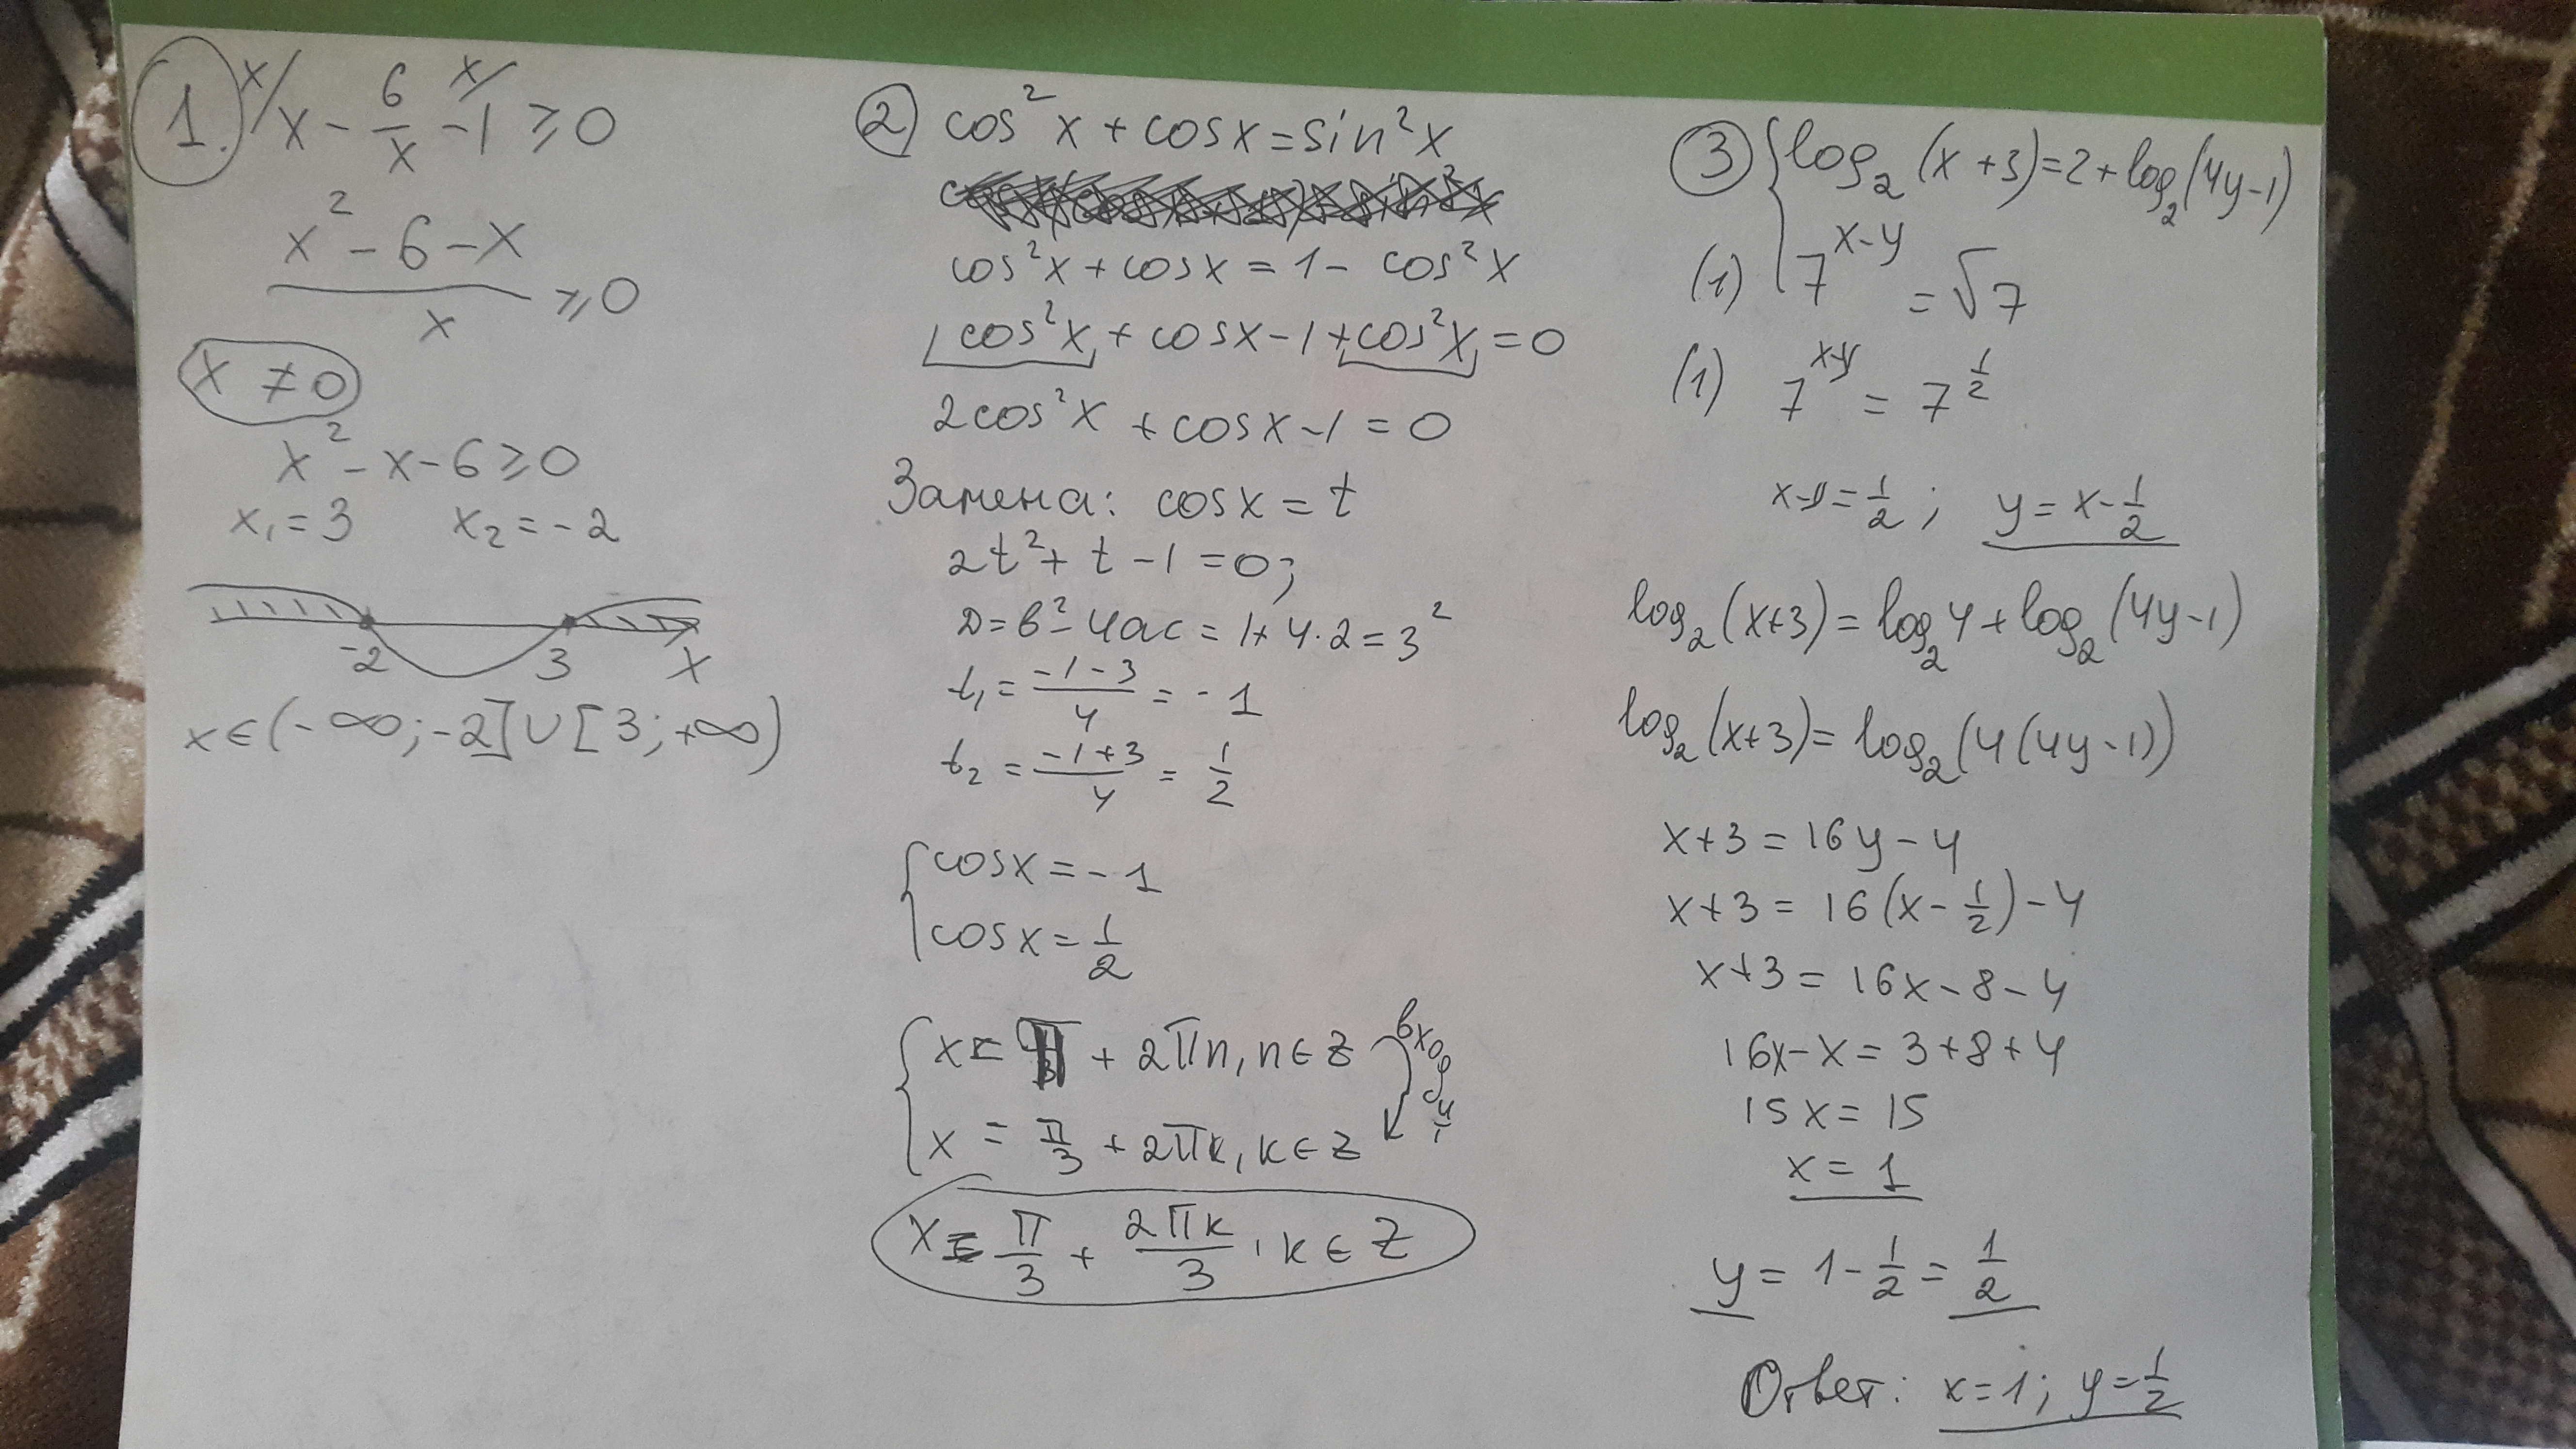 1. x/ x - 6/x x/ -1 ≥ 0
(x² - 6 - x)/x ≥ 0
x ≠ 0
x² - x - 6 ≥ 0
x₁ = 3 x₂ = -2
-2 3 x
x ∈ (-∞; -2] ∪ [3; +∞)
2) cos²x + cosx = sin²x
cos²x + cosx = 1 - cos²x
cos²x + cosx - 1 + cos²x = 0
2cos²x + cosx - 1 = 0
Замена: cosx = t
2t² + t - 1 = 0;
D = b² - 4ac = 1 + 4·2 = 3²
t₁ = (-1-3)/4 = -1
t₂ = (-1+3)/4 = 1/2
{ cosx = -1
cosx = 1/2
{ x = π + 2πn, n ∈ Z входит
x = π/3 + 2πk, k ∈ Z
x = π/3 + 2πk/3, k ∈ Z
3) { log₂(x+3) = 2 + log₂(4y-1)
(1) 7^(x-y) = √7
(1) 7^(x-y) = 7^(1/2)
x-y = 1/2; y = x - 1/2
log₂(x+3) = log₂4 + log₂(4y-1)
log₂(x+3) = log₂(4(4y-1))
x+3 = 16y - 4
x+3 = 16(x - 1/2) - 4
x+3 = 16x - 8 - 4
16x - x = 3 + 8 + 4
15x = 15
x = 1
y = 1 - 1/2 = 1/2
Ответ: x=1; y=1/2